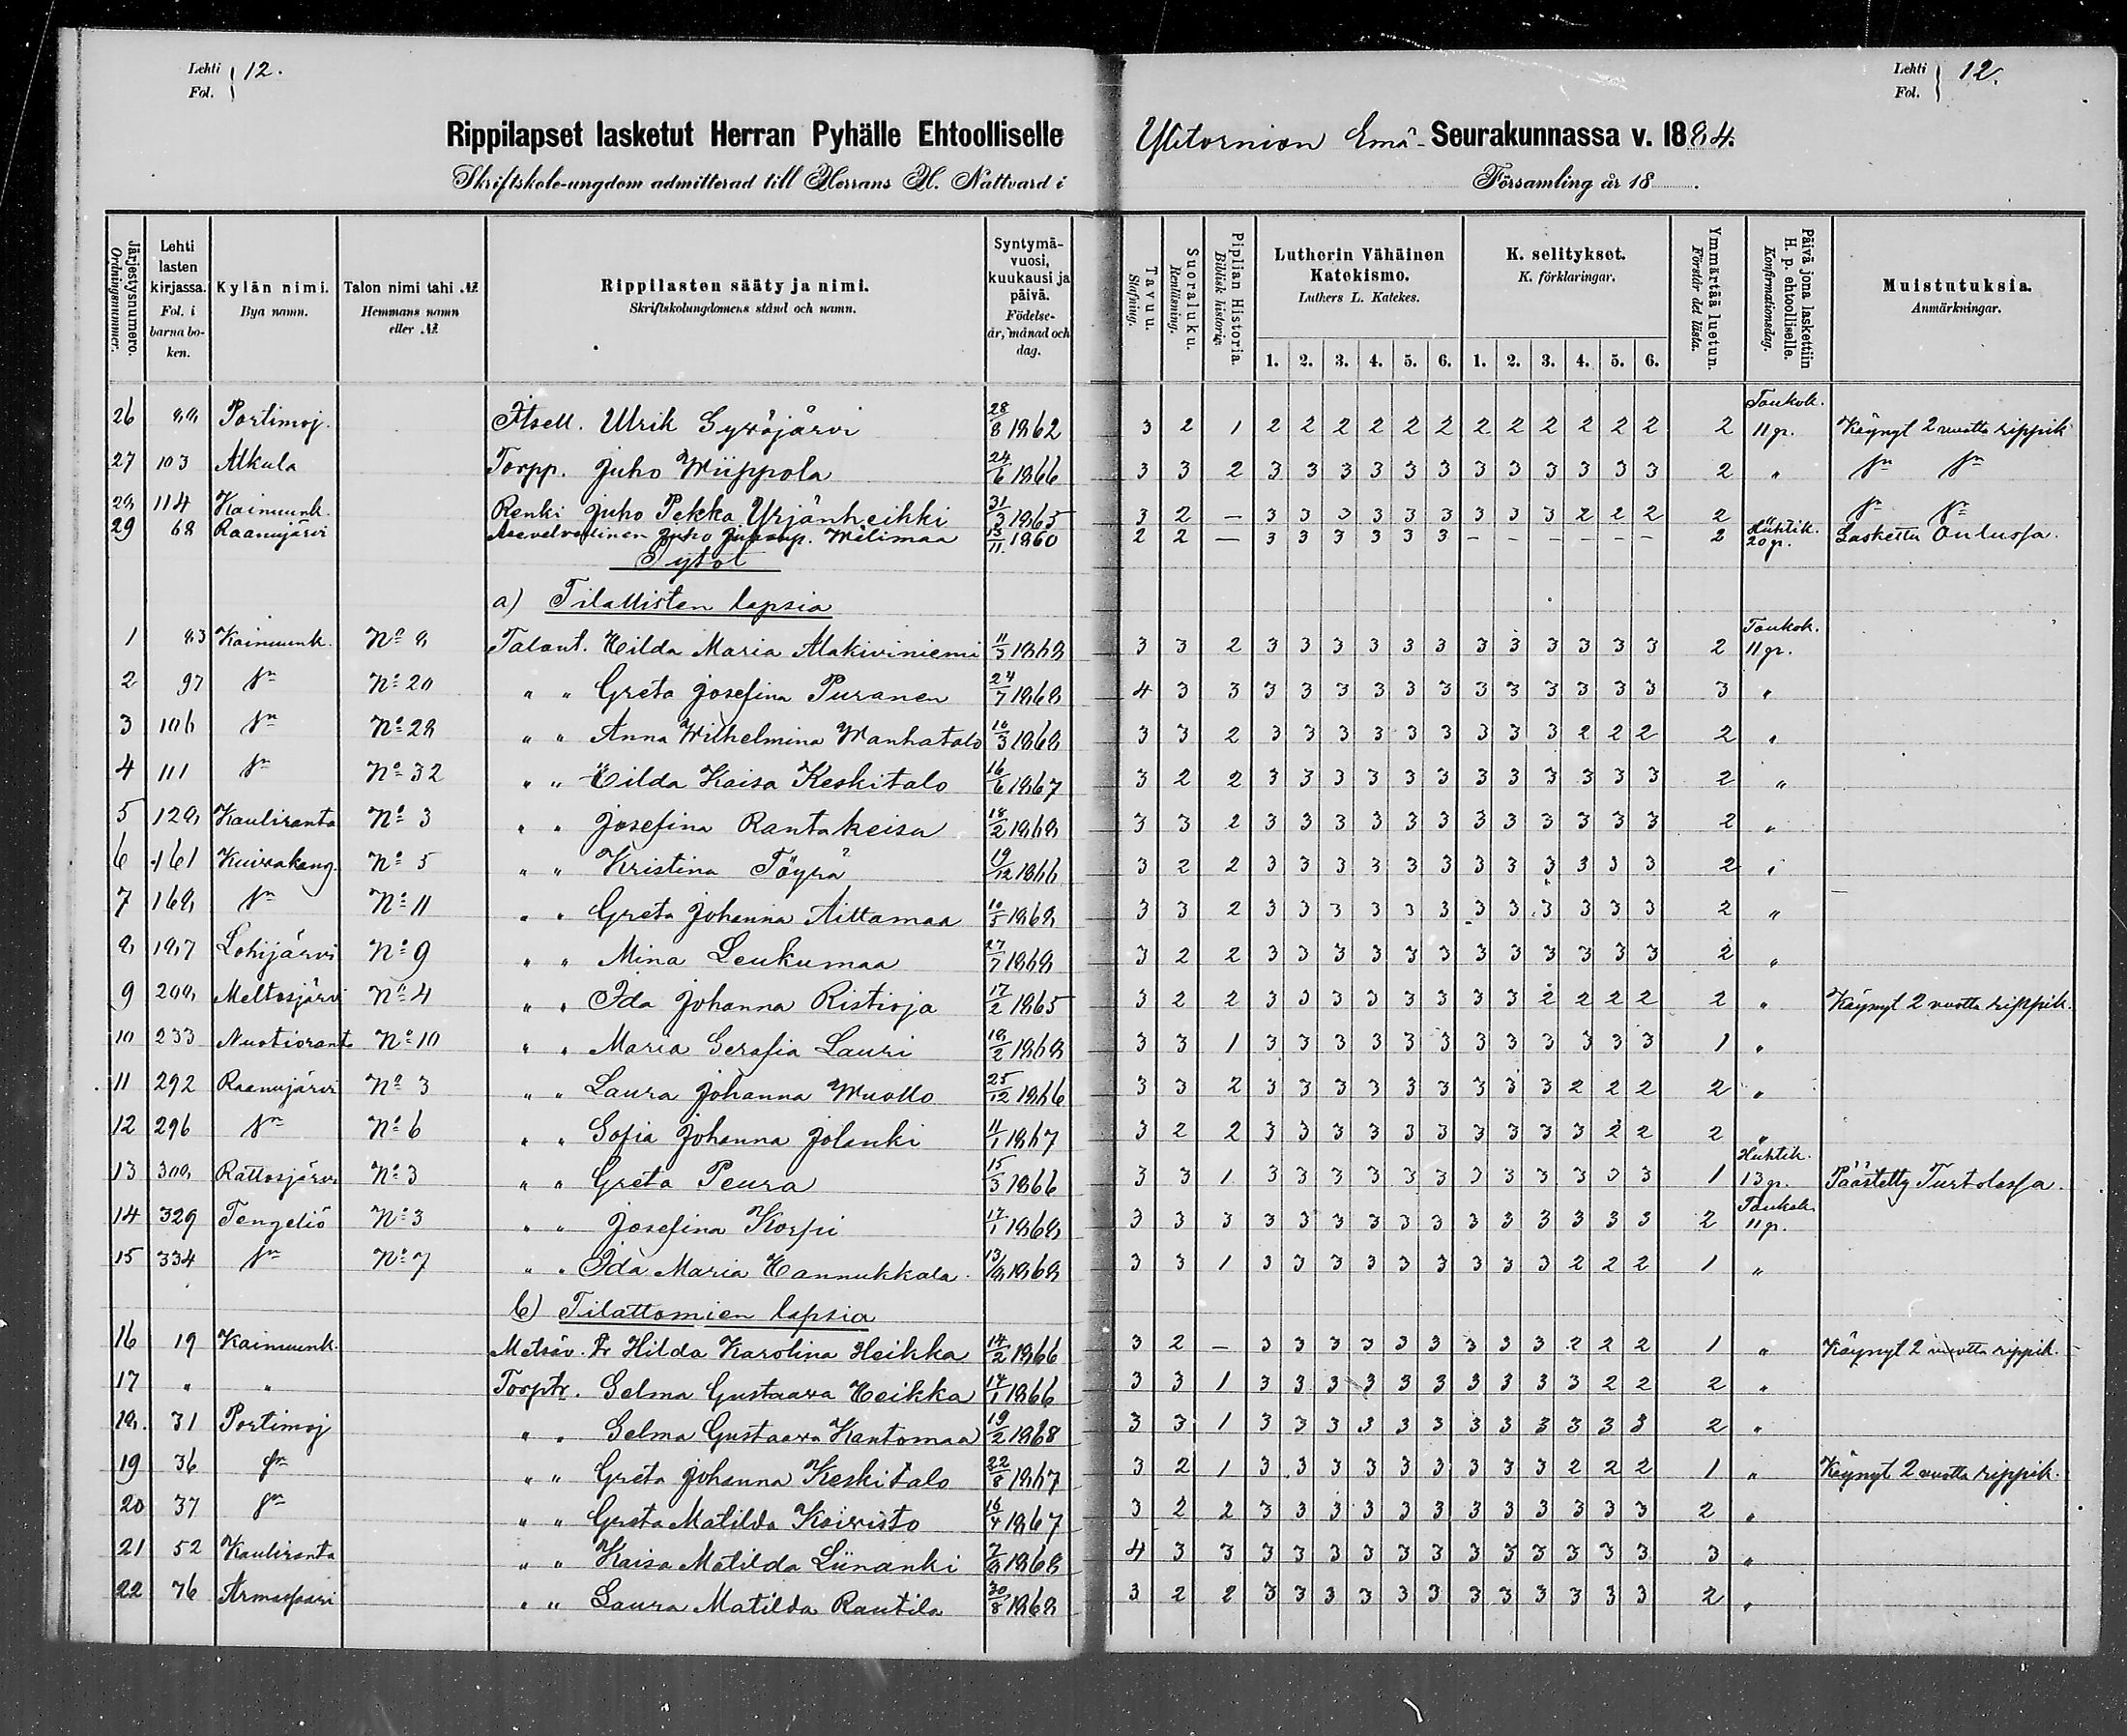 Lehti Fol. } 12.
Lehti Fol. } 12.
Rippilapset lasketut Herran Pyhälle Ehtoolliselle Ylitornion Emä-Seurakunnassa v. 1884.
Skriftskole-ungdom admitterad till Herrans H. Nattvard i Församling år 18 .
Järjestysnumero. Ordningsnummer. | Lehti lasten kirjassa. Fol. i barnaboken. | Kylän nimi. Bya namn. | Talon nimi tahi № Hemmans namn eller № | Rippilasten sääty ja nimi. Skriftskolungdomens stånd och namn. | Syntymä-vuosi, kuukausi ja päivä. Födelse-år, månad och dag. | Tavuu. Stafning. | Suoraluku. Renläsning. | Piplian Historia. Biblisk historia. | Lutherin Vähäinen Katekismo. Luthers L. Katekes. 1. 2. 3. 4. 5. 6. | K. selitykset. K. förklaringar. 1. 2. 3. 4. 5. 6. | Ymmärtää luetun. Förstår det lästa. | Päivä jona laskettiin H. p. ehtoolliselle. Konfirmationsdag. | Muistutuksia. Anmärkningar.
26 88 Portimoj. Itsell. Ulrik Syväjärvi 28/8 1862 3 2 1 2 2 2 2 2 2 2 2 2 2 2 2 2 Toukok. 11 p. Käynyt 2 vuotta rippik
27 103 Alkula Torpp. Juho Wiippola 24/6 1866 3 3 2 3 3 3 3 3 3 3 3 3 3 3 3 2 "
28 114 Kainuunk. Renki Juho Pekka Yrjänheikki 31/3 1865 3 2 — 3 3 3 3 3 3 3 3 3 2 2 2 2
29 68 Raanujärvi Asevelvollinen Juho Wilimaa 13/11 1860 2 2 — 3 3 3 3 3 3 – – – – – – 2 Huhtik. 20 p. Laskettu Oulussa.
Tytöt
a) Tilallisten lapsia
1 83 Kainuunk. No 8 Talont. Hilda Maria Alakiviniemi 11/3 1868 3 3 2 3 3 3 3 3 3 3 3 3 3 3 3 2 Toukok. 11 p.
2 97 No 20 " " Greta Josefina Puranen 24/7 1868 4 3 3 3 3 3 3 3 3 3 3 3 3 3 3 3 "
3 106 No 28 " " Anna Wilhelmina Wanhatalo 10/3 1868 3 3 2 3 3 3 3 3 3 3 3 3 2 2 2 2 "
4 111 No 32 " " Hilda Kaisa Keskitalo 16/6 1867 3 2 2 3 3 3 3 3 3 3 3 3 3 3 3 2 "
5 128 Kauliranta No 3 " " Josefina Rantakeisu 18/2 1868 3 3 2 3 3 3 3 3 3 3 3 3 3 3 3 2 "
6 161 Kuivakang. No 5 " " Kristina Töyrä 19/12 1866 3 2 2 3 3 3 3 3 3 3 3 3 3 3 3 2 "
7 168 No 11 " " Greta Johanna Aittamaa 10/5 1868 3 3 2 3 3 3 3 3 3 3 3 3 3 3 3 2 "
8 187 Lohijärvi No 9 " " Mina Leukumaa 27/7 1868 3 2 2 3 3 3 3 3 3 3 3 3 3 3 3 2 "
9 208 Meltosjärvi No 4 " " Ida Johanna Ristioja 17/2 1865 3 2 2 3 3 3 3 3 3 3 3 2 2 2 2 2 " Käynyt 2 vuotta rippik.
10 233 Nuotioranta No 10 " " Maria Serafia Lauri 18/2 1868 3 3 1 3 3 3 3 3 3 3 3 3 3 3 3 1 "
11 292 Raanujärvi No 3 " " Laura Johanna Wuollo 25/12 1866 3 3 2 3 3 3 3 3 3 3 3 3 2 2 2 2 "
12 296 No 6 " " Sofia Johanna Jolanki 11/1 1867 3 2 2 3 3 3 3 3 3 3 3 3 3 2 2 2 "
13 308 Rattosjärvi No 3 " " Greta Peura 15/3 1866 3 3 1 3 3 3 3 3 3 3 3 3 3 3 3 1 Huhtik. 13 p. Päästetty Turtolassa.
14 329 Tengeliö No 3 " " Josefina Korpi 17/1 1868 3 3 3 3 3 3 3 3 3 3 3 3 3 3 3 2 Toukok. 11 p.
15 334 No 7 " " Ida Maria Hannukkala 1868 3 3 1 3 3 3 3 3 3 3 3 3 2 2 2 1 "
b) Tilattomien lapsia
16 19 Kainuunk. Metsäv. Tr Hilda Karolina Heikka 14/2 1866 3 2 – 3 3 3 3 3 3 3 3 3 2 2 2 1 " Käynyt 2 vuotta rippik.
17 " " Torptr. Selma Gustaava Heikka 14/1 1866 3 3 1 3 3 3 3 3 3 3 3 3 3 2 2 2 "
18. 31 Portimoj " " Selma Gustaava Kantomaa 19/2 1868 3 3 1 3 3 3 3 3 3 3 3 3 3 3 3 2 "
19 36 " " Greta Johanna Keskitalo 22/8 1867 3 2 1 3 3 3 3 3 3 3 3 3 2 2 2 1 " Käynyt 2 vuotta rippik.
20 37 " " Greta Matilda Koivisto 16/4 1867 3 2 2 3 3 3 3 3 3 3 3 3 3 3 3 2 "
21 52 Kauliranta " " Kaisa Matilda Liinanki 1868 4 3 3 3 3 3 3 3 3 3 3 3 3 3 3 3 "
22 76 Armassaari " " Laura Matilda Rautila 30/8 1868 3 2 2 3 3 3 3 3 3 3 3 3 3 3 3 2 "